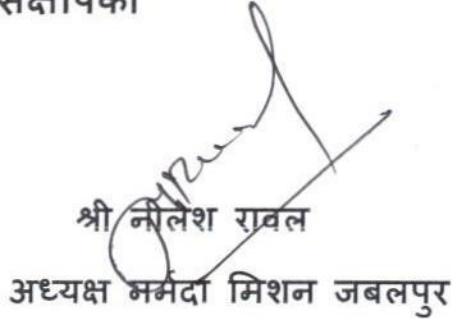 श्री नीलेश रावल
अध्यक्ष नर्मदा मिशन जबलपुर